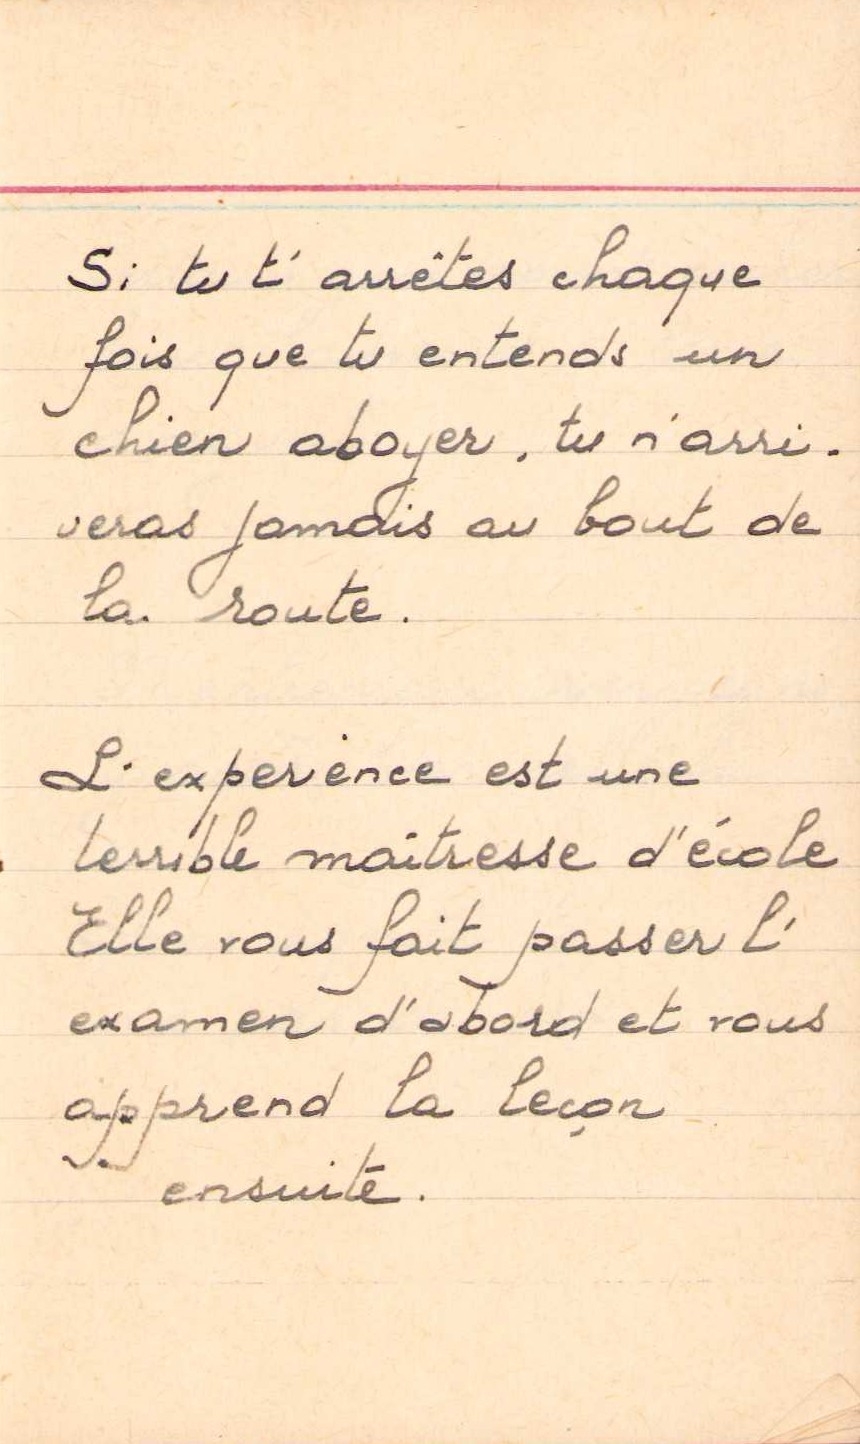 Si tu t'arrêtes chaque
fois que tu entends un
chien aboyer, tu n'arri-
veras jamais au bout de
la route.
L'experience est une
terrible maîtresse d'école
Elle vous fait passer l'
examen d'abord et vous
apprend la leçon
ensuite.